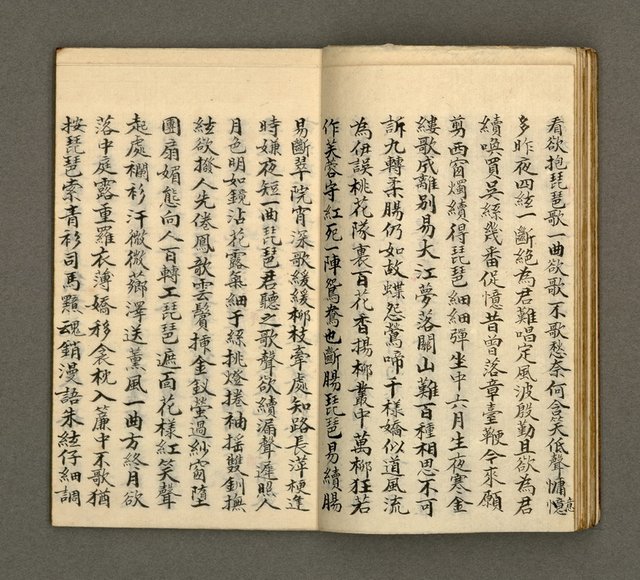 看欲抱琵琶歌一曲欲歌不歌愁奈何含天低聲慵憶
多昨夜四絃一斷絕為君難唱定風波殷勤且欲為君
續喚買吳絲幾番促憶昔曾落章臺鞭今來願
剪西窗燭續得琵琶細細彈坐中六月生夜寒金
縷歌成離別易大江夢落關山難百種相思不可
訴九轉柔腸仍如故蝶怨鶯啼千樣嬌似道風流
為伊誤桃花隊裏百花香揚柳叢中萬柳狂若
作芙蓉守紅死一陣鴛鴦也斷腸琵琶易續腸
易斷翠院宵深歌緩緩柳枝牽處知路長萍梗逢
時嫌夜短一曲琵琶君聽之歌聲欲續漏聲遲照人
月色明如鏡沾花露氣細于絲挑燈捲袖搖雙釧撫
絃欲撥人先倦鳳歌雲鬢挿金釵螢過紗窗墮
團扇媚態向人百轉工琵琶遮面花樣紅笑聲
起處襴衫汗微微薌澤送薰風一曲方終月欲
落中庭露重羅衣薄嬌移衾枕入簾中不歌猶
按琵琶索青衫司馬黯魂銷漫語朱絃仔細調